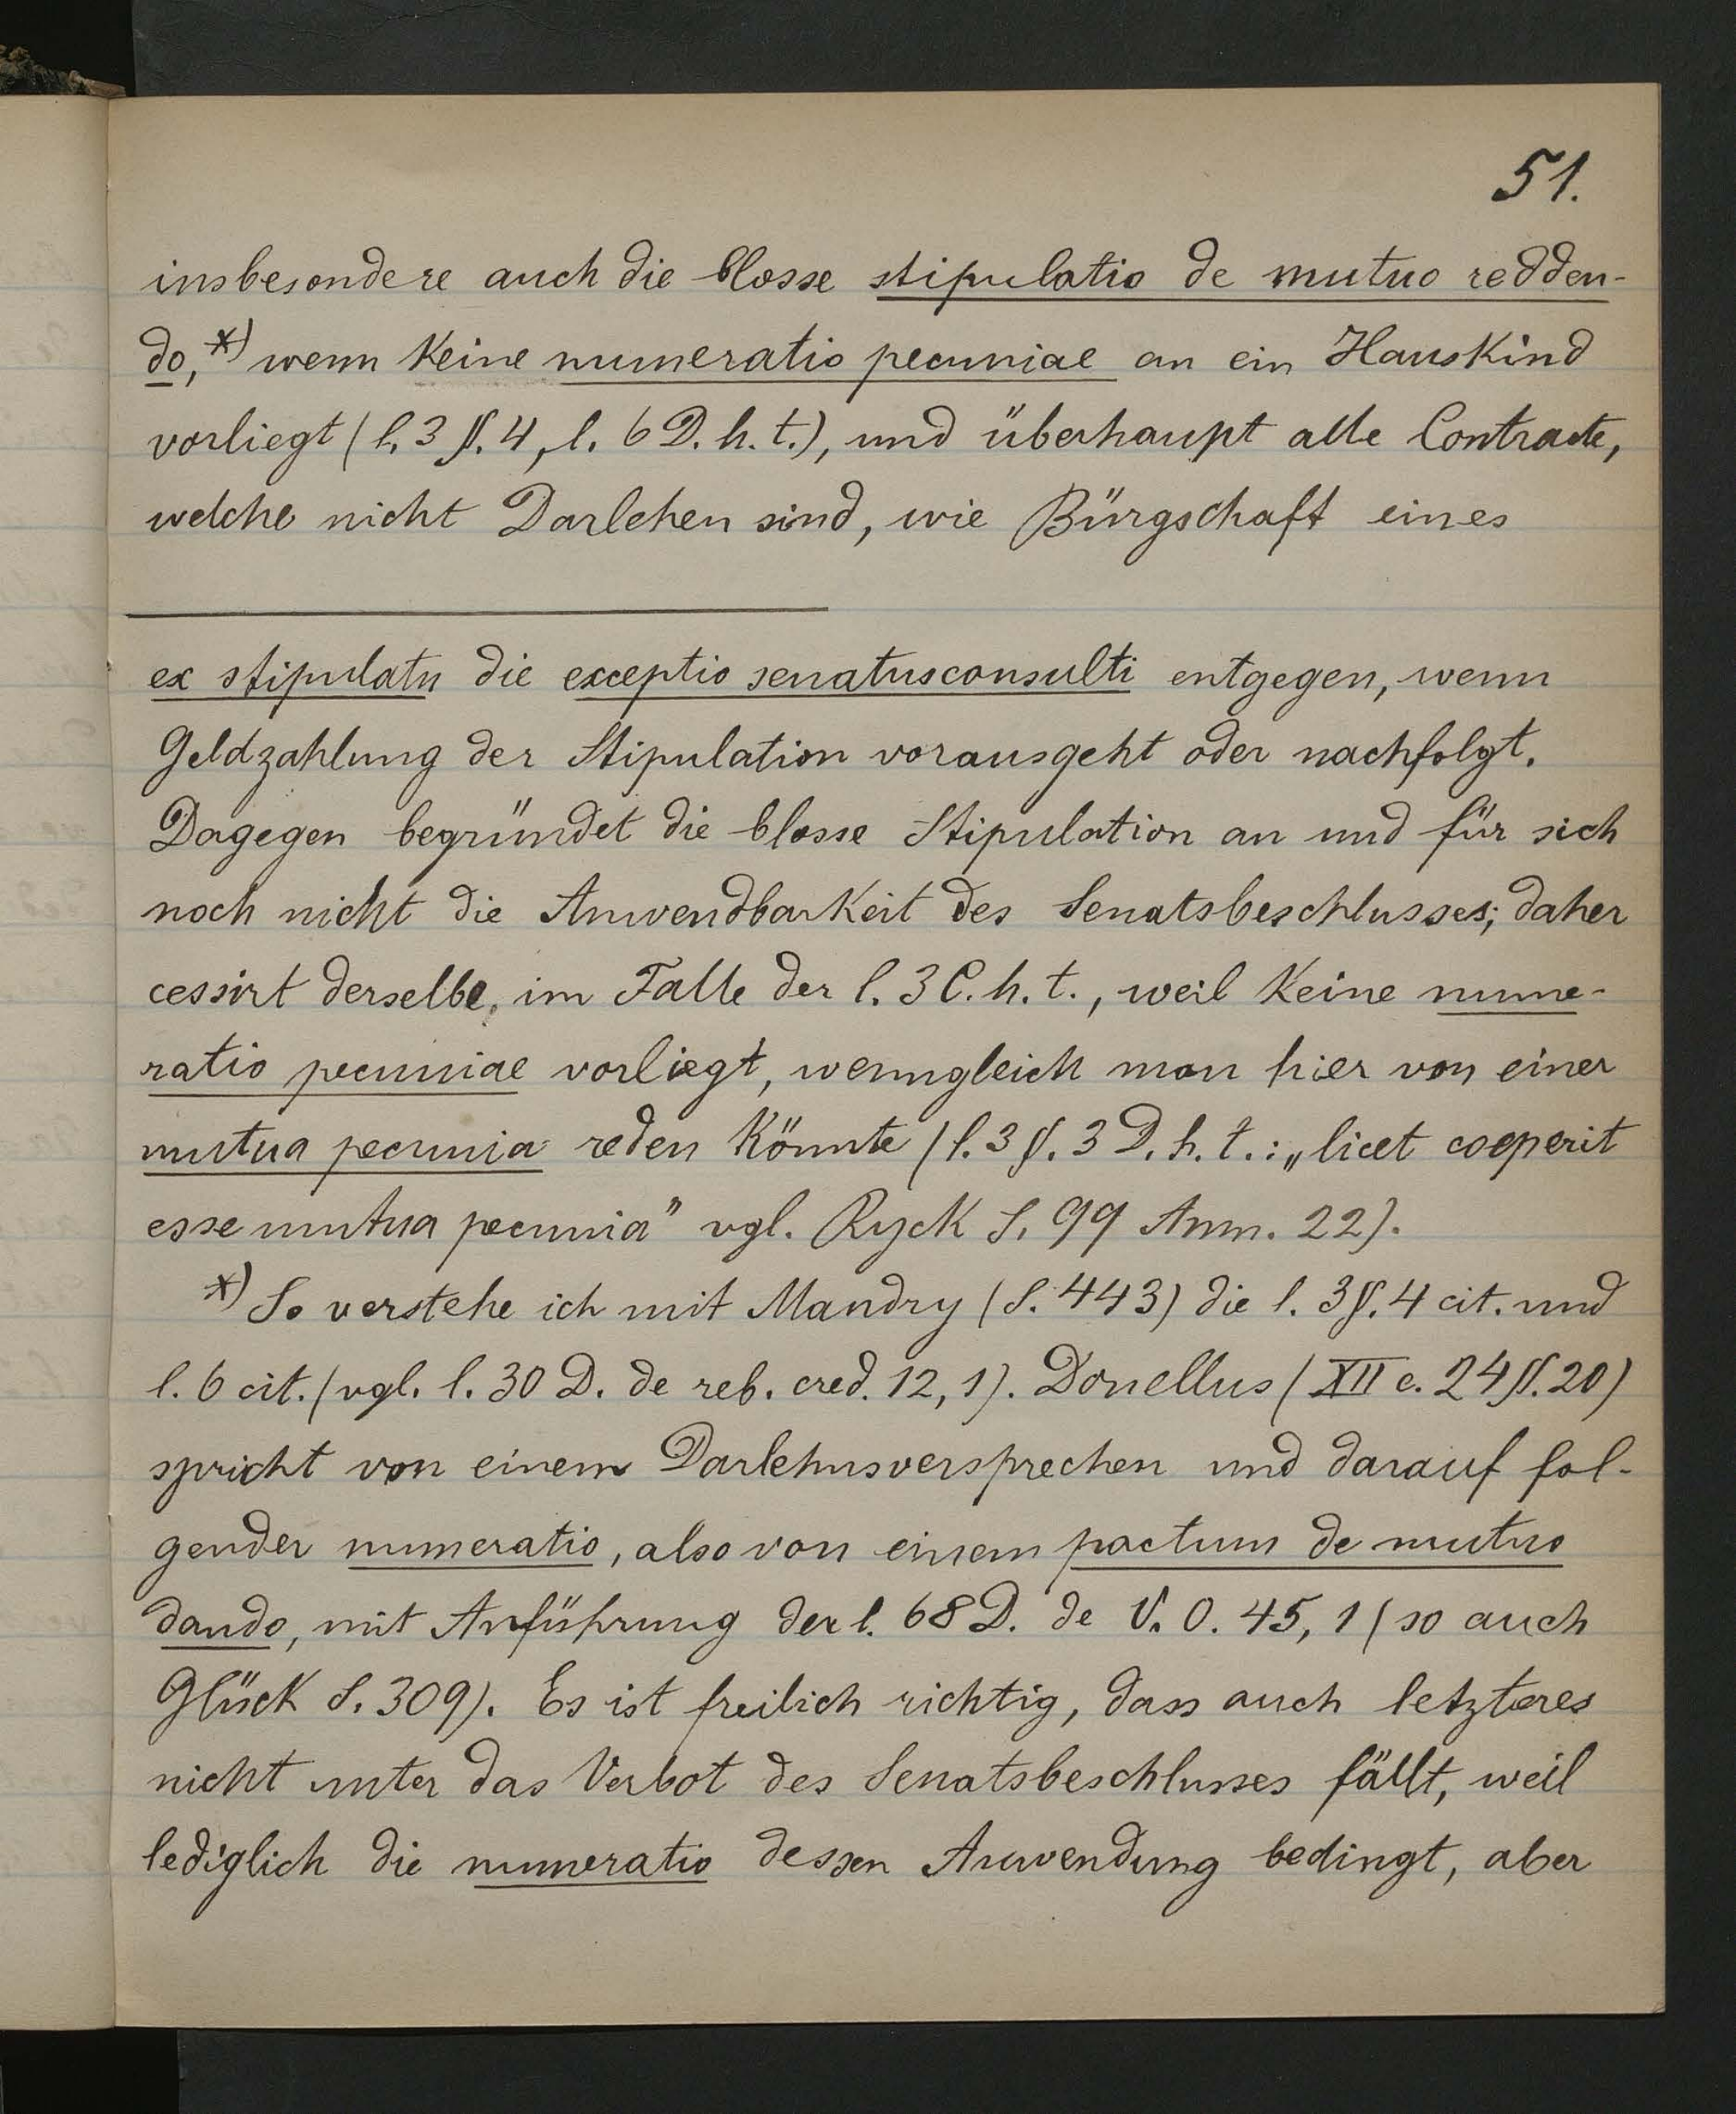 51.
insbesondere auch die blosse stipulatio de mutuo redden-
do,*) wenn keine numeratio pecuniae an ein Hauskind
vorliegt (l. 3 §. 4, l. 6 D. h. t.), und überhaupt alle Contracte,
welche nicht Darlehen sind, wie Bürgschaft eines
ex stipulatu die exceptio senatusconsulti entgegen, wenn
Geldzahlung der Stipulation vorausgeht oder nachfolgt.
Dagegen begründet die blosse Stipulation an und für sich
noch nicht die Anwendbarkeit des Senatsbeschlusses; daher
cessirt derselbe, im Falle der l. 3 C. h. t., weil keine nume-
ratio pecuniae vorliegt, wenngleich man hier von einer
mutua pecunia reden könnte (l. 3 §. 3 D. h. t.: „licet coeperit
esse mutua pecunia" vgl. Ryck S. 99 Anm. 22).
*) So verstehe ich mit Mandry (S. 443) die l. 3 §. 4 cit. und
l. 6 cit. (vgl. l. 30 D. de reb. cred. 12, 1). Donellus (XII c. 24 §. 20)
spricht von einem Darlehnsversprechen und darauf fol-
gender numeratio, also von einem pactum de mutuo
dando, mit Anführung der l. 68 D. de V. O. 45, 1 (so auch
Glück S. 309). Es ist freilich richtig, dass auch letzteres
nicht unter das Verbot des Senatsbeschlusses fällt, weil
lediglich die numeratio dessen Anwendung bedingt, aber